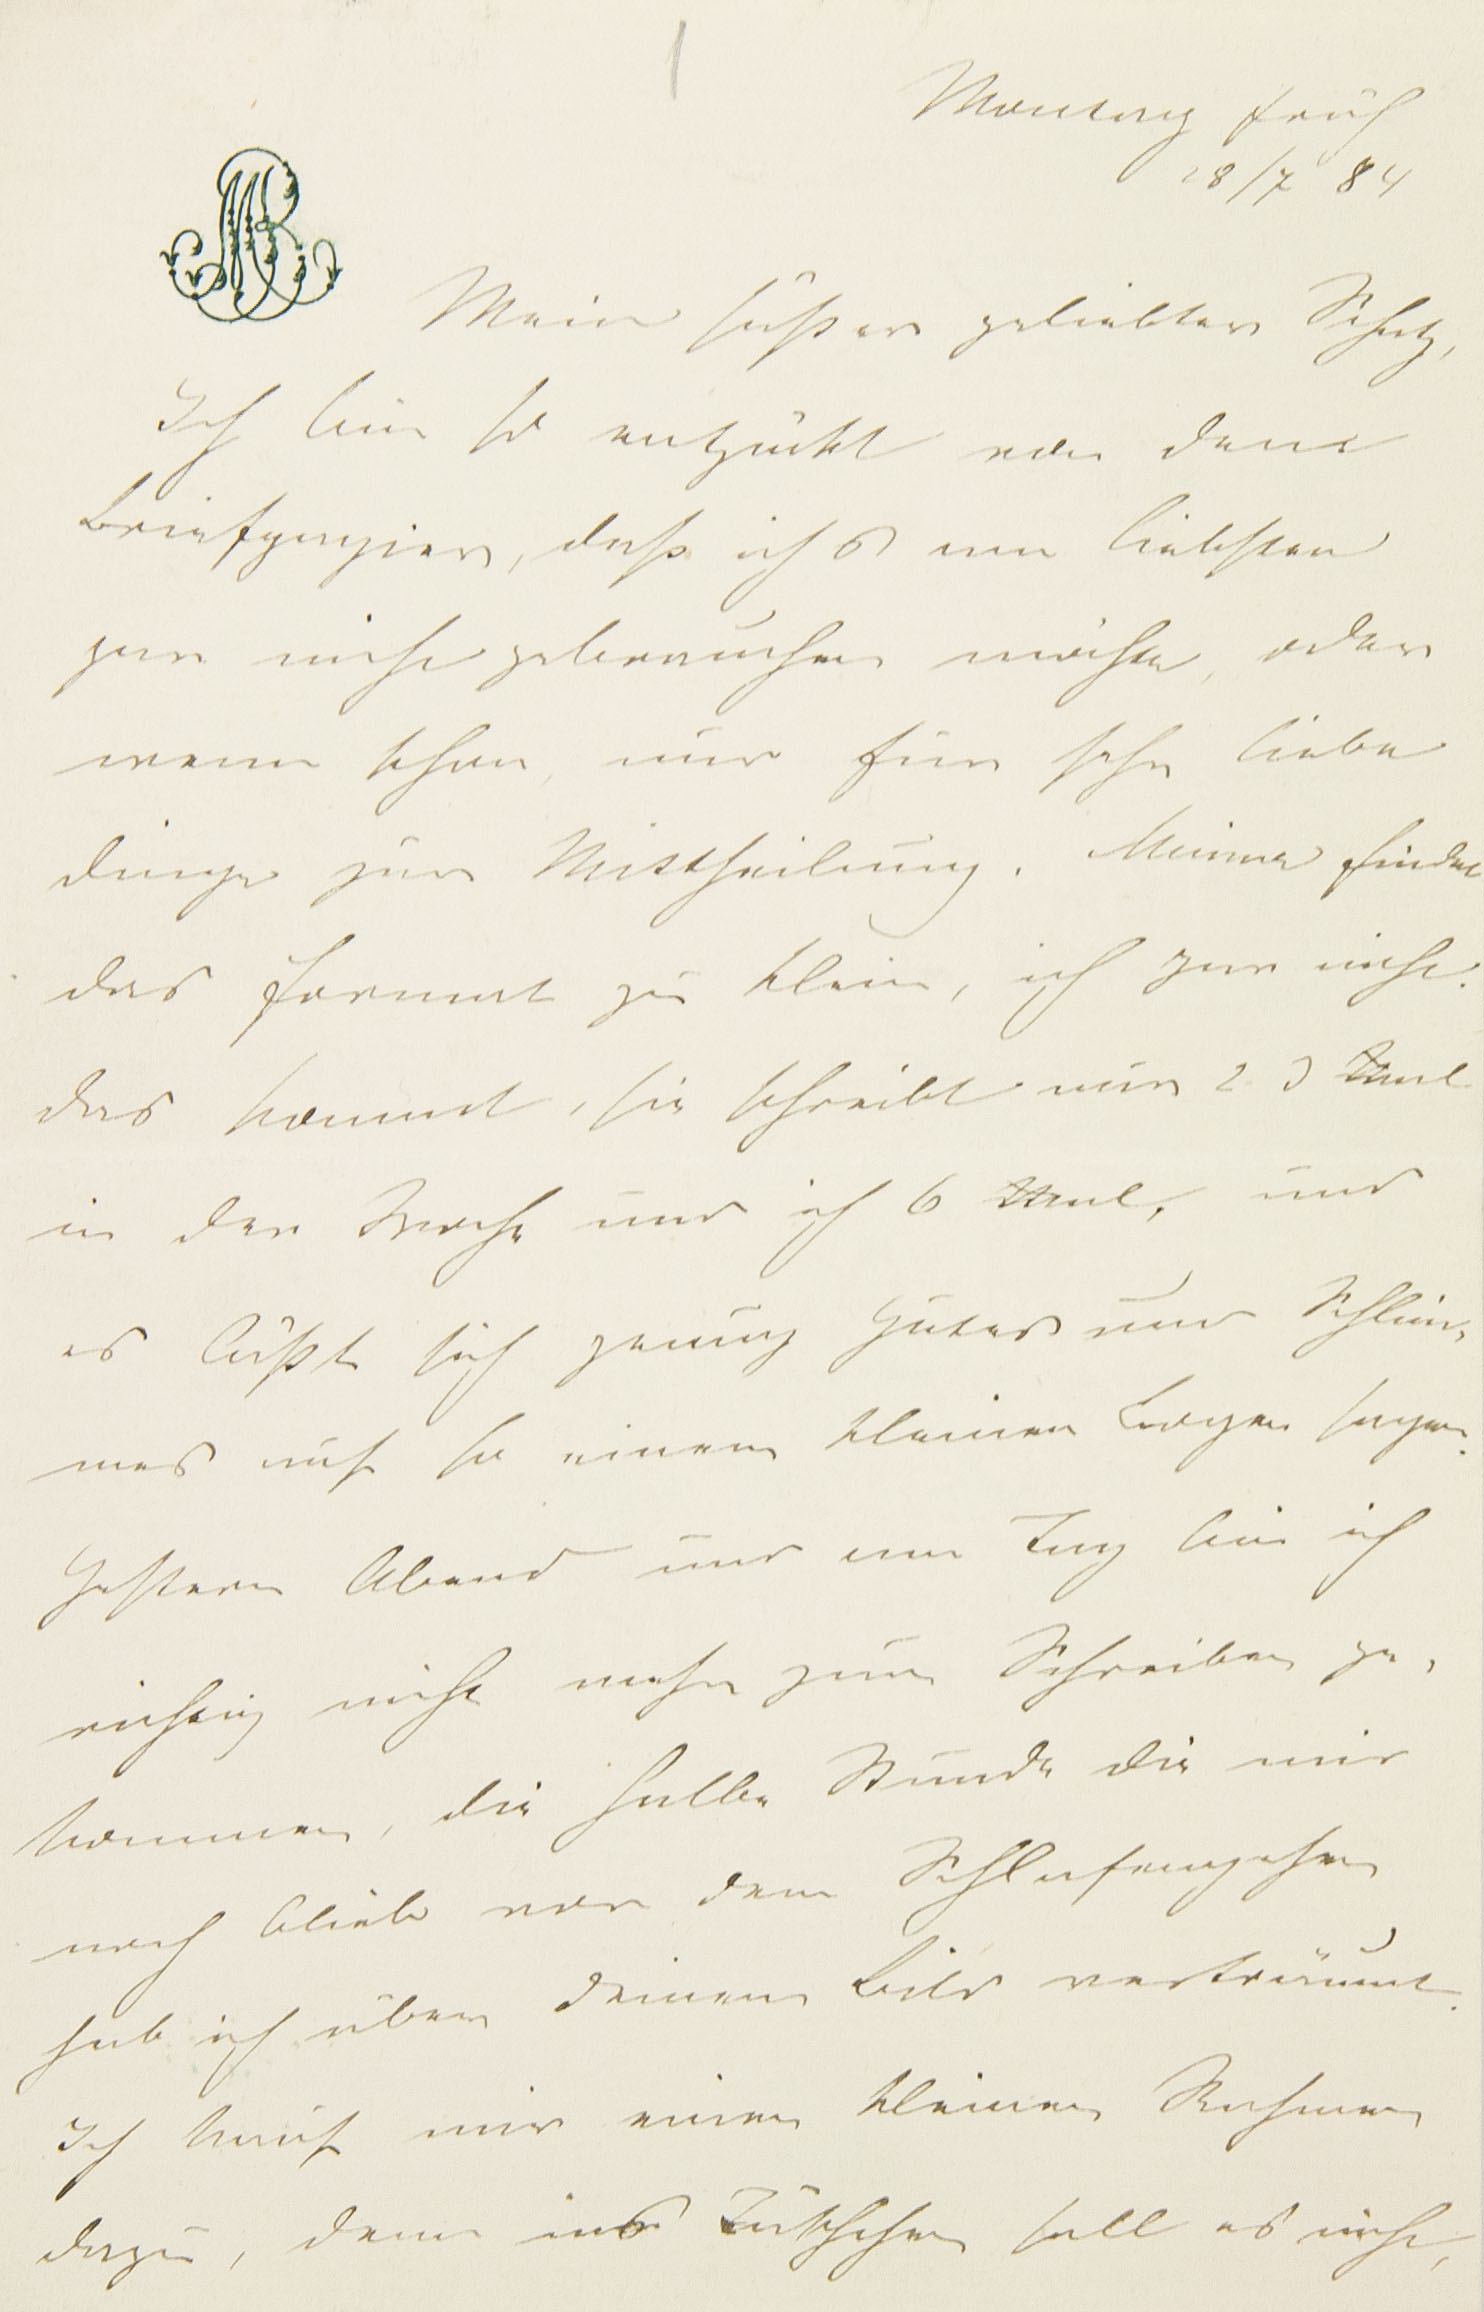 1
Montag früh
28/7 84
MB
Mein süßer geliebter Schatz,
Ich bin so entzückt von dem
Briefpapier, daß ichs am liebsten
gar nicht gebrauchen möchte, oder
wenn schon, nur für sehr liebe
Dinge zur Mittheilung. Minna findet
das Format zu klein, ich gar nicht.
das kommt, sie schreibt nur 2 3 Mal
in der Woche und ich 6 Mal, und
es läßt sich genug Gutes und Schlim-
mes auf so einem kleinen Bogen sagen.
Gestern Abend und am Tag bin ich
richtig nicht mehr zum Schreiben ge-
kommen, die halbe Stunde die mir
noch blieb vor dem Schlafengehen
hab ich über deinem Bild verträumt.
Ich kauf mir einen kleinen Rahmen
dazu, denn ins Täschchen soll es nicht,